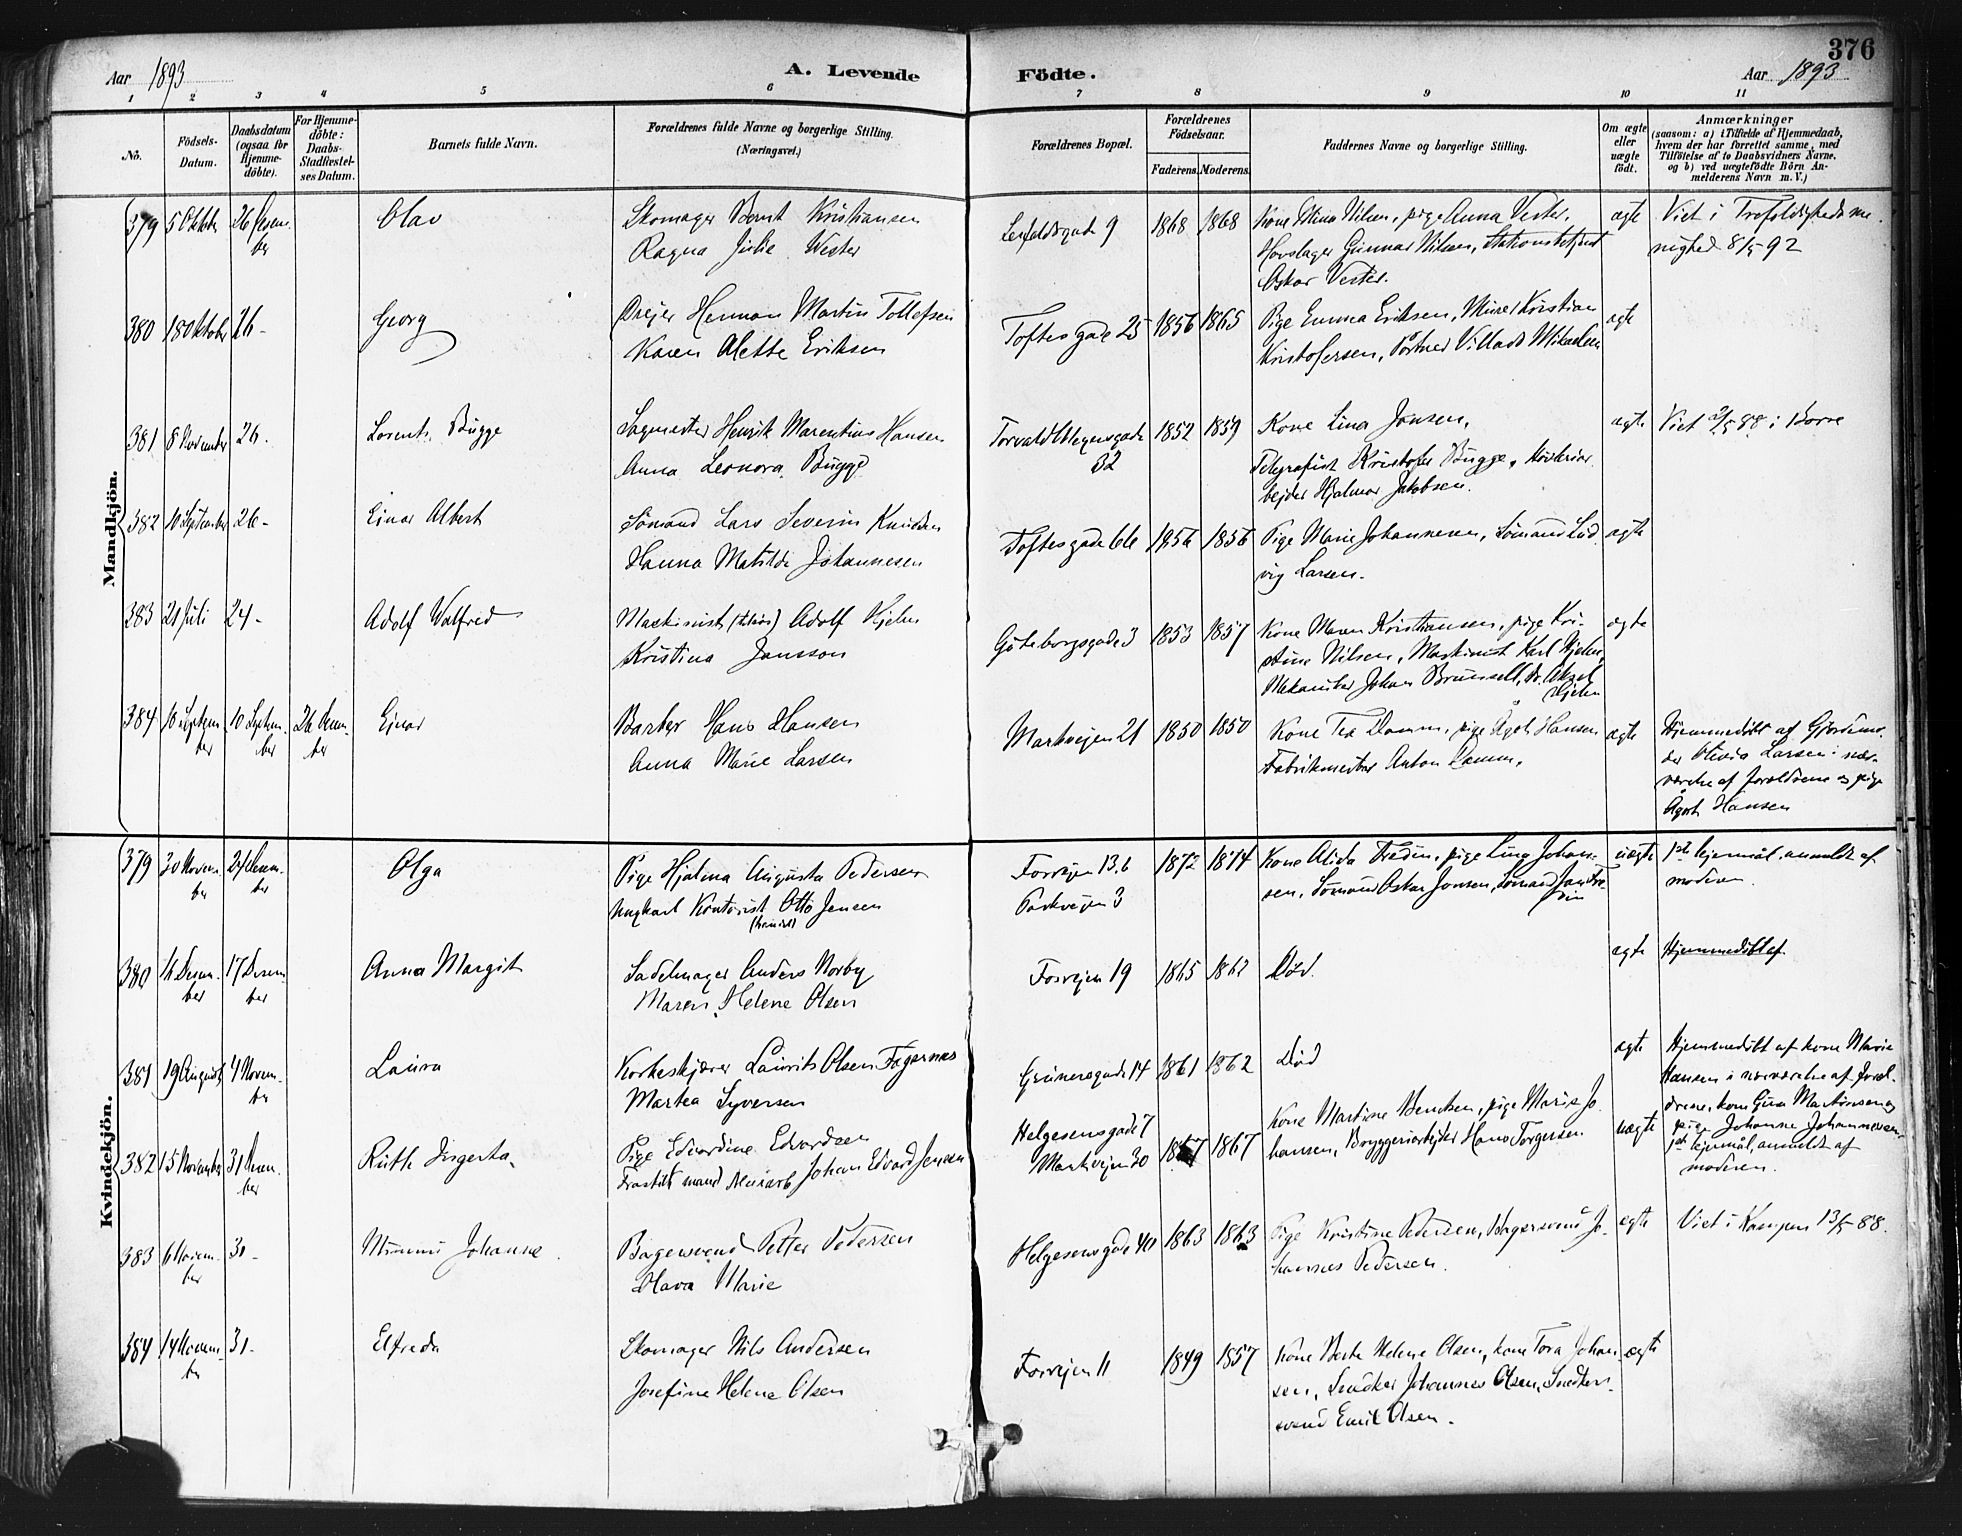 376
Aar 1893
A. Levende
Födte.
Aar 1893
1 2 3 4 5 6 7 8 9 10 11
No.
Födsels-
Datum.
Daabsdatum
(ogsaa for
Hjemme-
döbte).
For Hjemme-
döbte:
Daabs-
Stadfæstel-
ses Datum.
Barnets fulde Navn.
Forældrenes fulde Navne og borgerlige Stilling.
(Næringsvei.)
Forældrenes Bopæl.
Forældrenes
Födselsaar.
Faderens. Moderens.
Faddernes Navne og borgerlige Stilling.
Om ægte
eller
uægte
födt.
Anmærkninger
(saasom: a) i Tilfælde af Hjemmedaab,
hvem der har forrettet samme, med
Tilföielse af to Daabsvidners Navne,
og b) ved uægtefödte Börn An-
melderens Navn m. V.)
Mandkjön.
379 5 Oktober 26 Desem-
ber
Olav
Skomager Bernt Kristiansen
Ragna Julie Wester
9 1868 1868
Kone Mina Nilsen, pige Anna Vester,
Hovslager Gunnar Nilsen,
Oskar Vester.
ægte
Viet i Trefoldighedsme-
nighed 8/5 92
380 18 Oktober 26-
Georg
Drejer Herman Martin Tollefsen
Karen Alette Eriksen
Toftesgade 25 1856 1865
Pige Emma Eriksen, Murer Kristian
Kristofersen, Portner Villads Mikaelsen
ægte
381 8 November 26.
Lorents Bugge
Sagmester Henrik Marentius Hansen
Anna Leonora Bugge
Torvald Meyersgade
32
1852 1859
Kone Lina Jansen,
Telegrafist Kristofer Bugge,
bejder Hjalmar Jakobsen.
ægte
Viet 88 i Borre
382 10 September 26-
Einar Albert
Sömand Lars Severin Knudsen
Hanna Matilde Johannesen
Toftesgade 66 1856 1856
Pige Marie Johannesen, Sömand Lud
vig Larsen.
ægte
383 21 Juli 24-
Adolf Walfred
Maskinist Adolf Hjelm
Kristina Jansson
Göteborgsgade 3 1853 1857
Kone Maren Kristiansen, pige Kri-
stine Nilsen, Maskinist Karl Hjelm,
Mekaniker Johan Brunsell, Aksel
Hjelm
ægte
384 10 Septem
ber
10 Septem-
ber
26 Desem
ber
Einar
Barber Hans Hansen
Anna Marie Larsen
Markvejen 21 1850 1850
Kone Tea Damm, pige Ågot Hansen
Fabrikmester Anton Damm.
ægte
Hjemmedöbt af Gjordmo-
der Olivia Larsen i nær-
værelse af forældrene og pige
Ågot Hansen
Kvindekjön.
379 30 Novem-
ber
24 Desem-
ber
Olga
Pige Hjalma Augusta Pedersen
Ungkarl Kontorist Otto Jensen
Fossvejen 13.b
Parkvejen 3
1872 1874
Kone Alida Fredin, pige Lina Johan-
sen, Sömand Oskar Jonsen, Sömand
uægte
1ste lejermål, anmeldt af
moderen
380 16 Desem-
ber
17 Desem
ber
Anna Margit
Sadelmager Anders Norby
Maren Helene Olsen
Fossvejen 19 1865 1862
Död.
ægte
Hjemmedöbt af
381 19 August 4 Novem-
ber
Laura
Korkeskjærer Laurits Olsen Fagernæs
Martea Syversen
Grünersgade 14 1861 1862
Död
ægte
Hjemmedöbt af kone Marie
Hansen i nærværelse af foræl-
drene, kone Gina Martinsen og
pige Johanne Johannesen
382 15 November 31 Desem-
ber
Ruth Ingerta
Pige Edvardine Edvardsen
Fraskilt mand Murarb Johan Edvard Jensen
Helgesensgade 7
Markvejen 30
1857 1867
Kone Martine Bendsen, pige Marie Jo
hansen, Bryggeriarbejder Hans Torgersen
uægte
1ste lejermål, anmeldt af
moderen.
383 6 Novem-
ber
31-
Mimmi Johanne
Bagersvend Petter Pedersen
Olava Marie
Helgesensgade 40 1863 1863
Pige Kristine Pedersen, Bagersvend Jo-
hannes Pedersen.
ægte
Viet i Kampen 13/5 88.
384 14 Novem-
ber
31-
Elfreda
Skomager Nils Andersen
Josefine Helene Olsen
Fossvejen 11 1849 1857
Kone Berte Helene Olsen, kone Tora Johan
sen, Snedker Johannes Olsen, Snedker-
svend Emil Olsen.
ægte